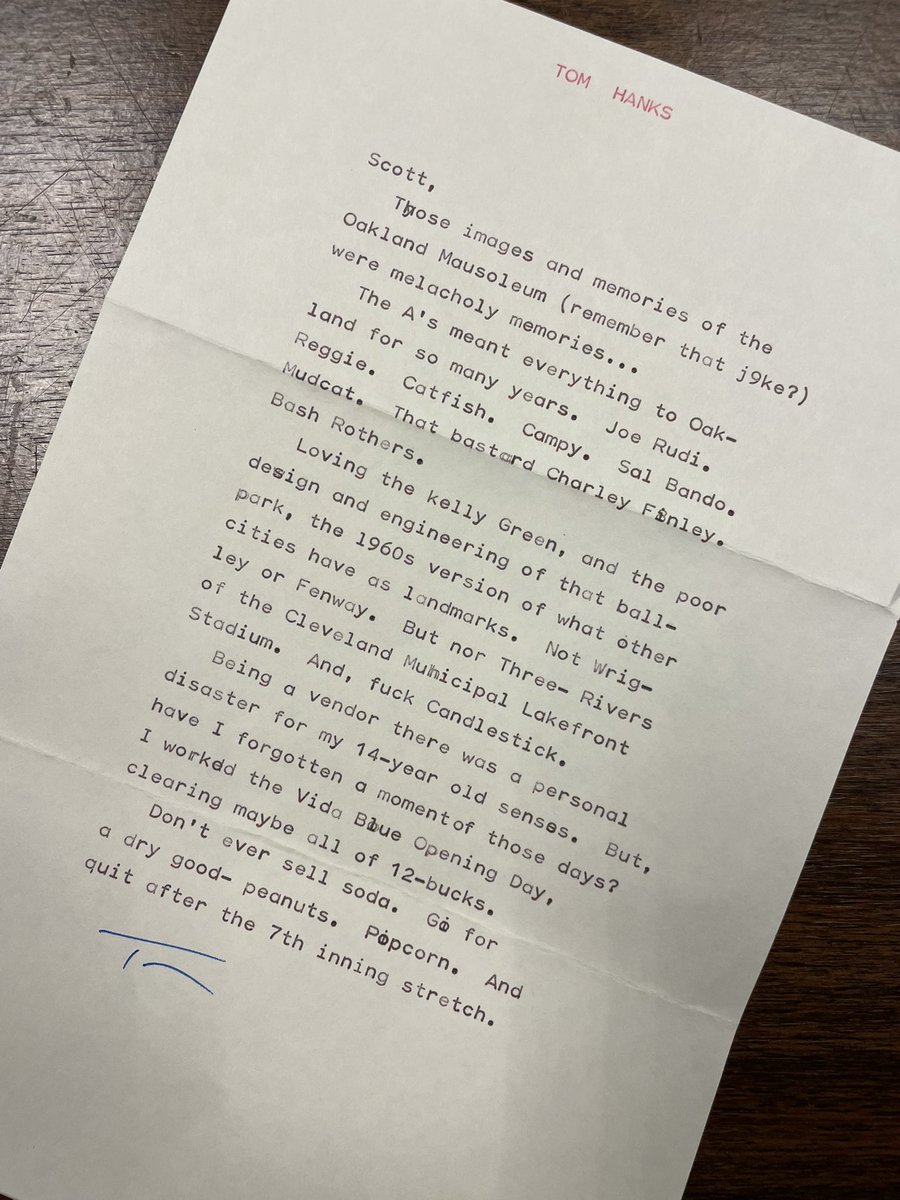 TOM HANKS
Scott,
Those images and memories of the
Oakland Mausoleum (remember that j9ke?)
were melacholy memories...
The A's meant everything to Oak-
land for so many years. Joe Rudi.
Reggie. Catfish. Campy. Sal Bando.
Mudcat. That bastard Charley Finley.
Bash Rothers.
Loving the kelly Green, and the poor
design and engineering of that ball-
park, the 1960s version of what other
cities have as landmarks. Not Wrig-
ley or Fenway. But nor Three- Rivers
of the Cleveland Municipal Lakefront
Stadium. And, fuck Candlestick.
Being a vendor there was a personal
disaster for my 14-year old senses. But,
have I forgotten a moment of those days?
I worked the Vida Blue Opening Day,
clearing maybe all of 12-bucks.
Don't ever sell soda. Go for
a dry good- peanuts. Popcorn. And
quit after the 7th inning stretch.